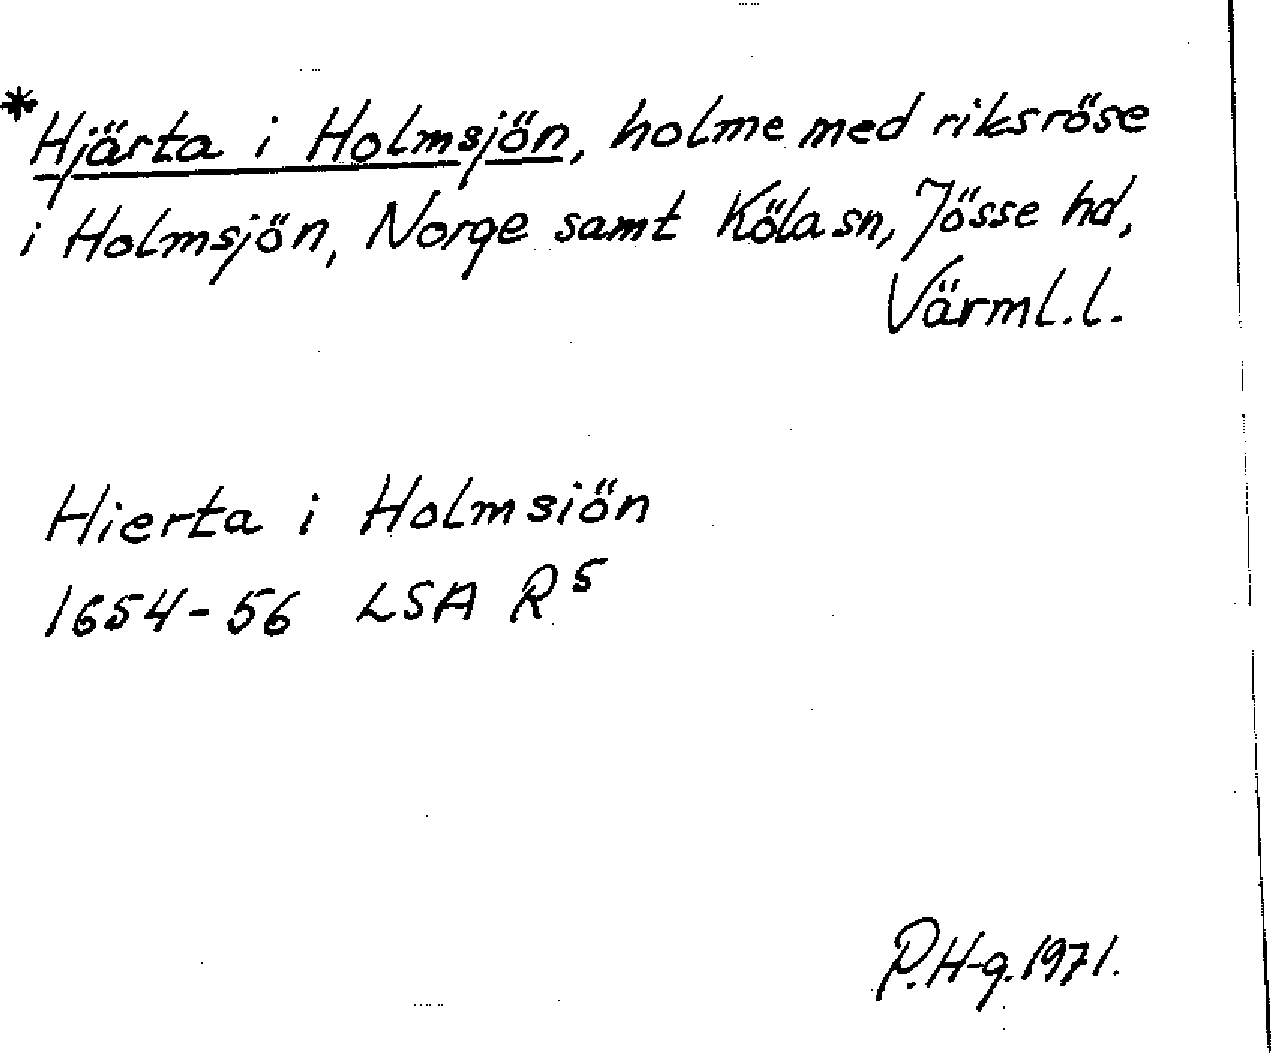 *Hjärta i Holmsjön, holme med riksröse
i Holmsjön, Norge samt Köla sn, Jösse hd,
Värml. l.
Hierta i Holmsiön
1654-56 LSA R⁵
P.H-g. 1971.